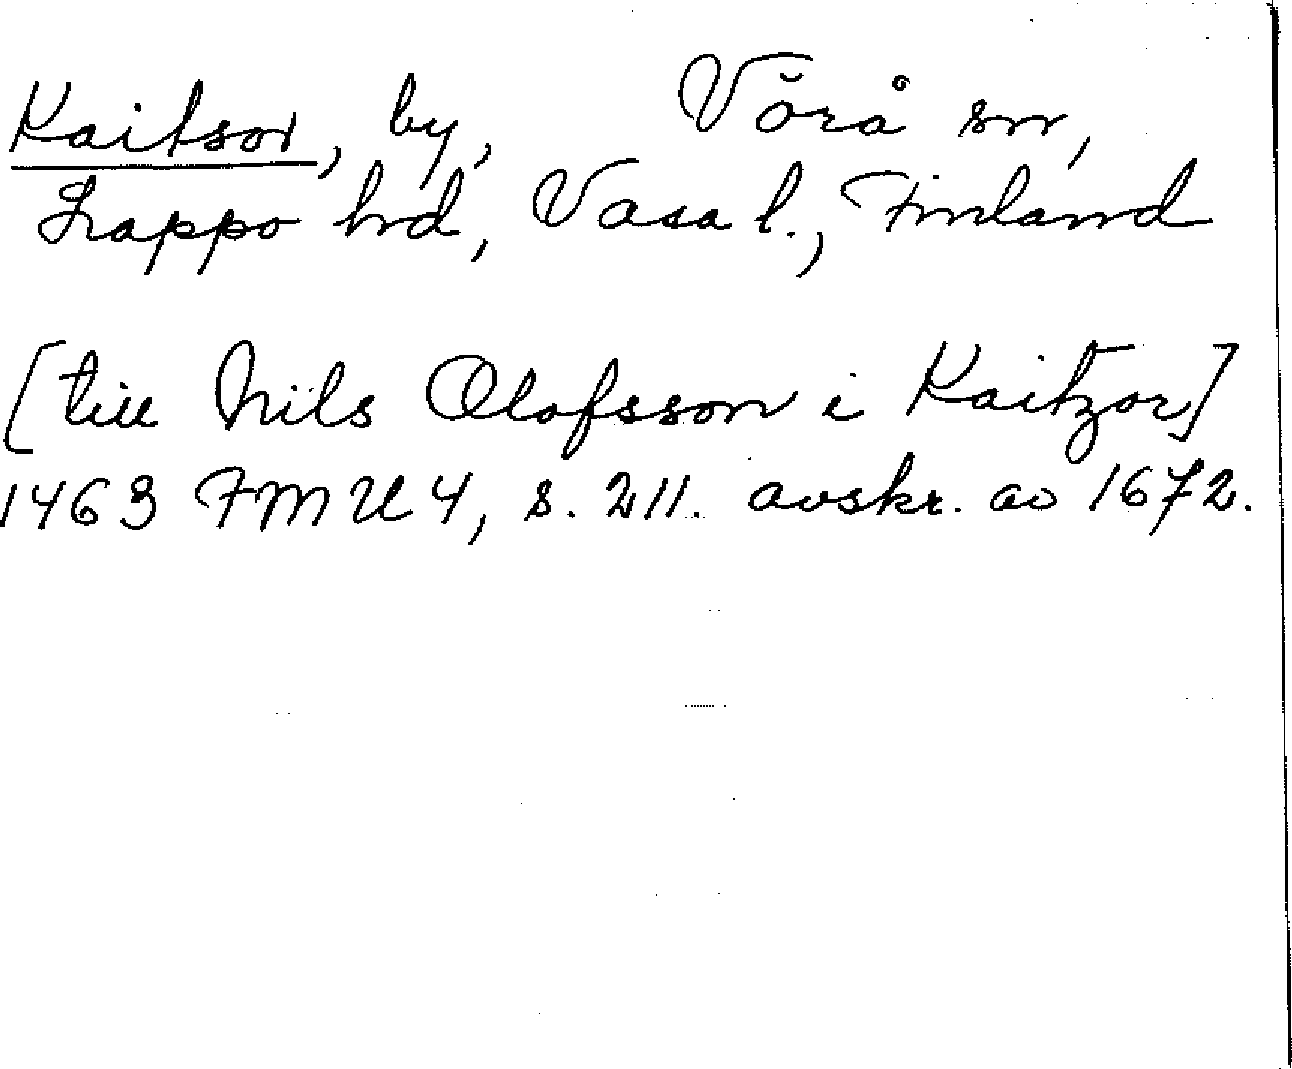 Kaitsor, by, Vörå sn,
Lappo hd, Vasa l., Finland
[till Nils Olofsson i Kaitzor]
1463 FMU 4, s. 211. avskr. av 1672.